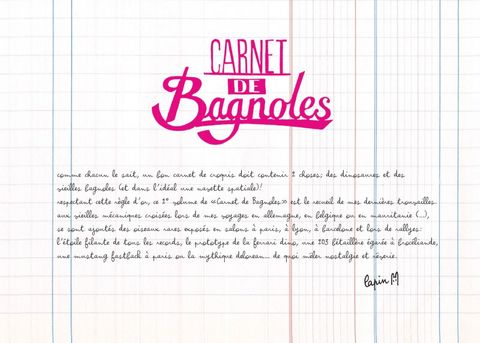 CARNET
DE
Bagnoles
comme chacun le sait, un bon carnet de croquis doit contenir 2 choses: des dinosaures et des
vieilles bagnoles (et dans l'idéal une navette spatiale)!
respectant cette règle d'or, ce 1er volume de «Carnet de Bagnoles» est le recueil de mes dernières trouvailles.
aux vieilles mécaniques croisées lors de mes voyages en allemagne, en belgique ou en mauritanie (...),
se sont ajoutés des oiseaux rares exposés en salons à paris, à lyon, à barcelone et lors de rallyes:
l'étoile filante de tous les records, le prototype de la ferrari dino, une 203 bétaillère égarée à brocéliande,
une mustang fastback à paris ou la mythique delorean... de quoi mêler nostalgie et rêverie.
lapin